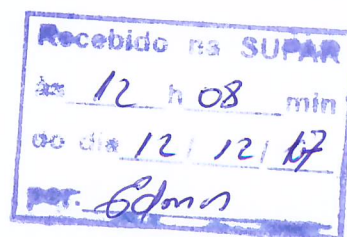 Recebido na SUPAR
às 12 h 08 min
do dia 12/12/17
por. Edmar